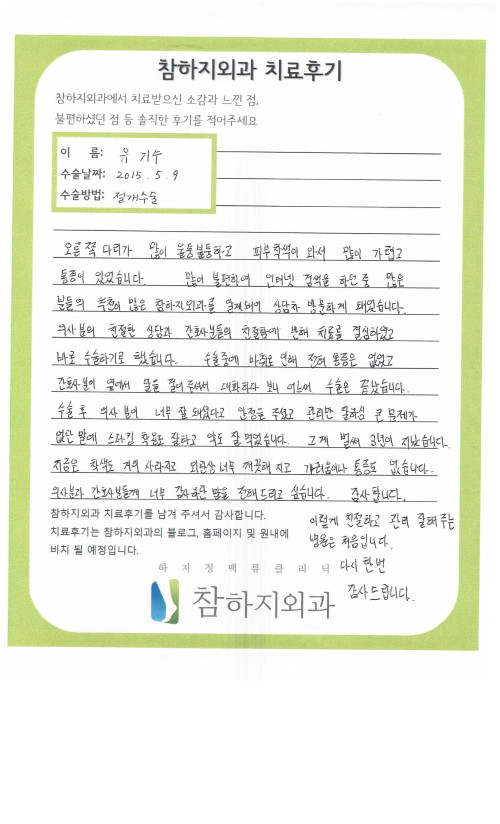 참하지외과 치료후기
참하지외과에서 치료받으신 소감과 느낀 점,
불편하셨던 점 등 솔직한 후기를 적어주세요
이 름: 유 기수
수술날짜: 2015. 5. 9
수술방법: 절개수술
오른쪽 다리가 많이 울퉁불퉁하고 피부착색이 와서 많이 가렵고
통증이 있었습니다. 많이 불편하여 인터넷 검색을 하던중 많은
분들의 추천이 많은 참하지외과를 알게되어 상담차 방문하게 돼었습니다.
의사분의 친절한 상담과 간호사분들의 친절함에 반해 치료를 결심하였고
바로 수술하기로 했습니다. 수술중에 마취로 인해 전혀 통증은 없었고
간호사분이 옆에서 말을 걸어 주셔서 대화하다 보니 어느새 수술은 끝났습니다.
수술후 의사 분이 너무 잘 돼었다고 안정을 주었고 관리만 잘하심 큰 문제가
없단 말에 스타킹 착용도 잘하고 약도 잘 먹었습니다. 그게 벌써 3년이 지났습니다.
지금은 착색도 거의 사라지고 외관상 너무 깨끗해 지고 가려움이나 통증도 없습니다.
의사분과 간호사분들께 너무 감사하단 말을 전해드리고 싶습니다. 감사합니다.
참하지외과 치료후기를 남겨 주셔서 감사합니다.
치료후기는 참하지외과의 블로그, 홈페이지 및 원내에
비치 될 예정입니다.
이렇게 친절하고 관리 잘해주는
병원은 처음입니다.
다시 한번
감사드립니다.
하지정맥류클리닉
참하지외과